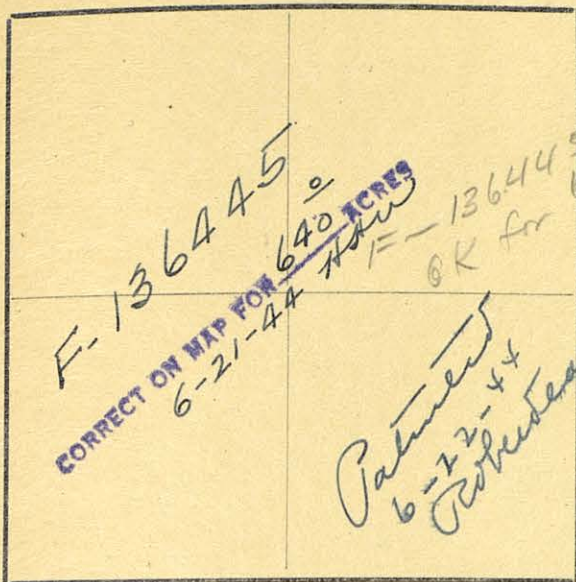 F-136445
CORRECT ON MAP FOR 640 ACRES
6-21-44
F-136445
OK for
Patented
6-22-44